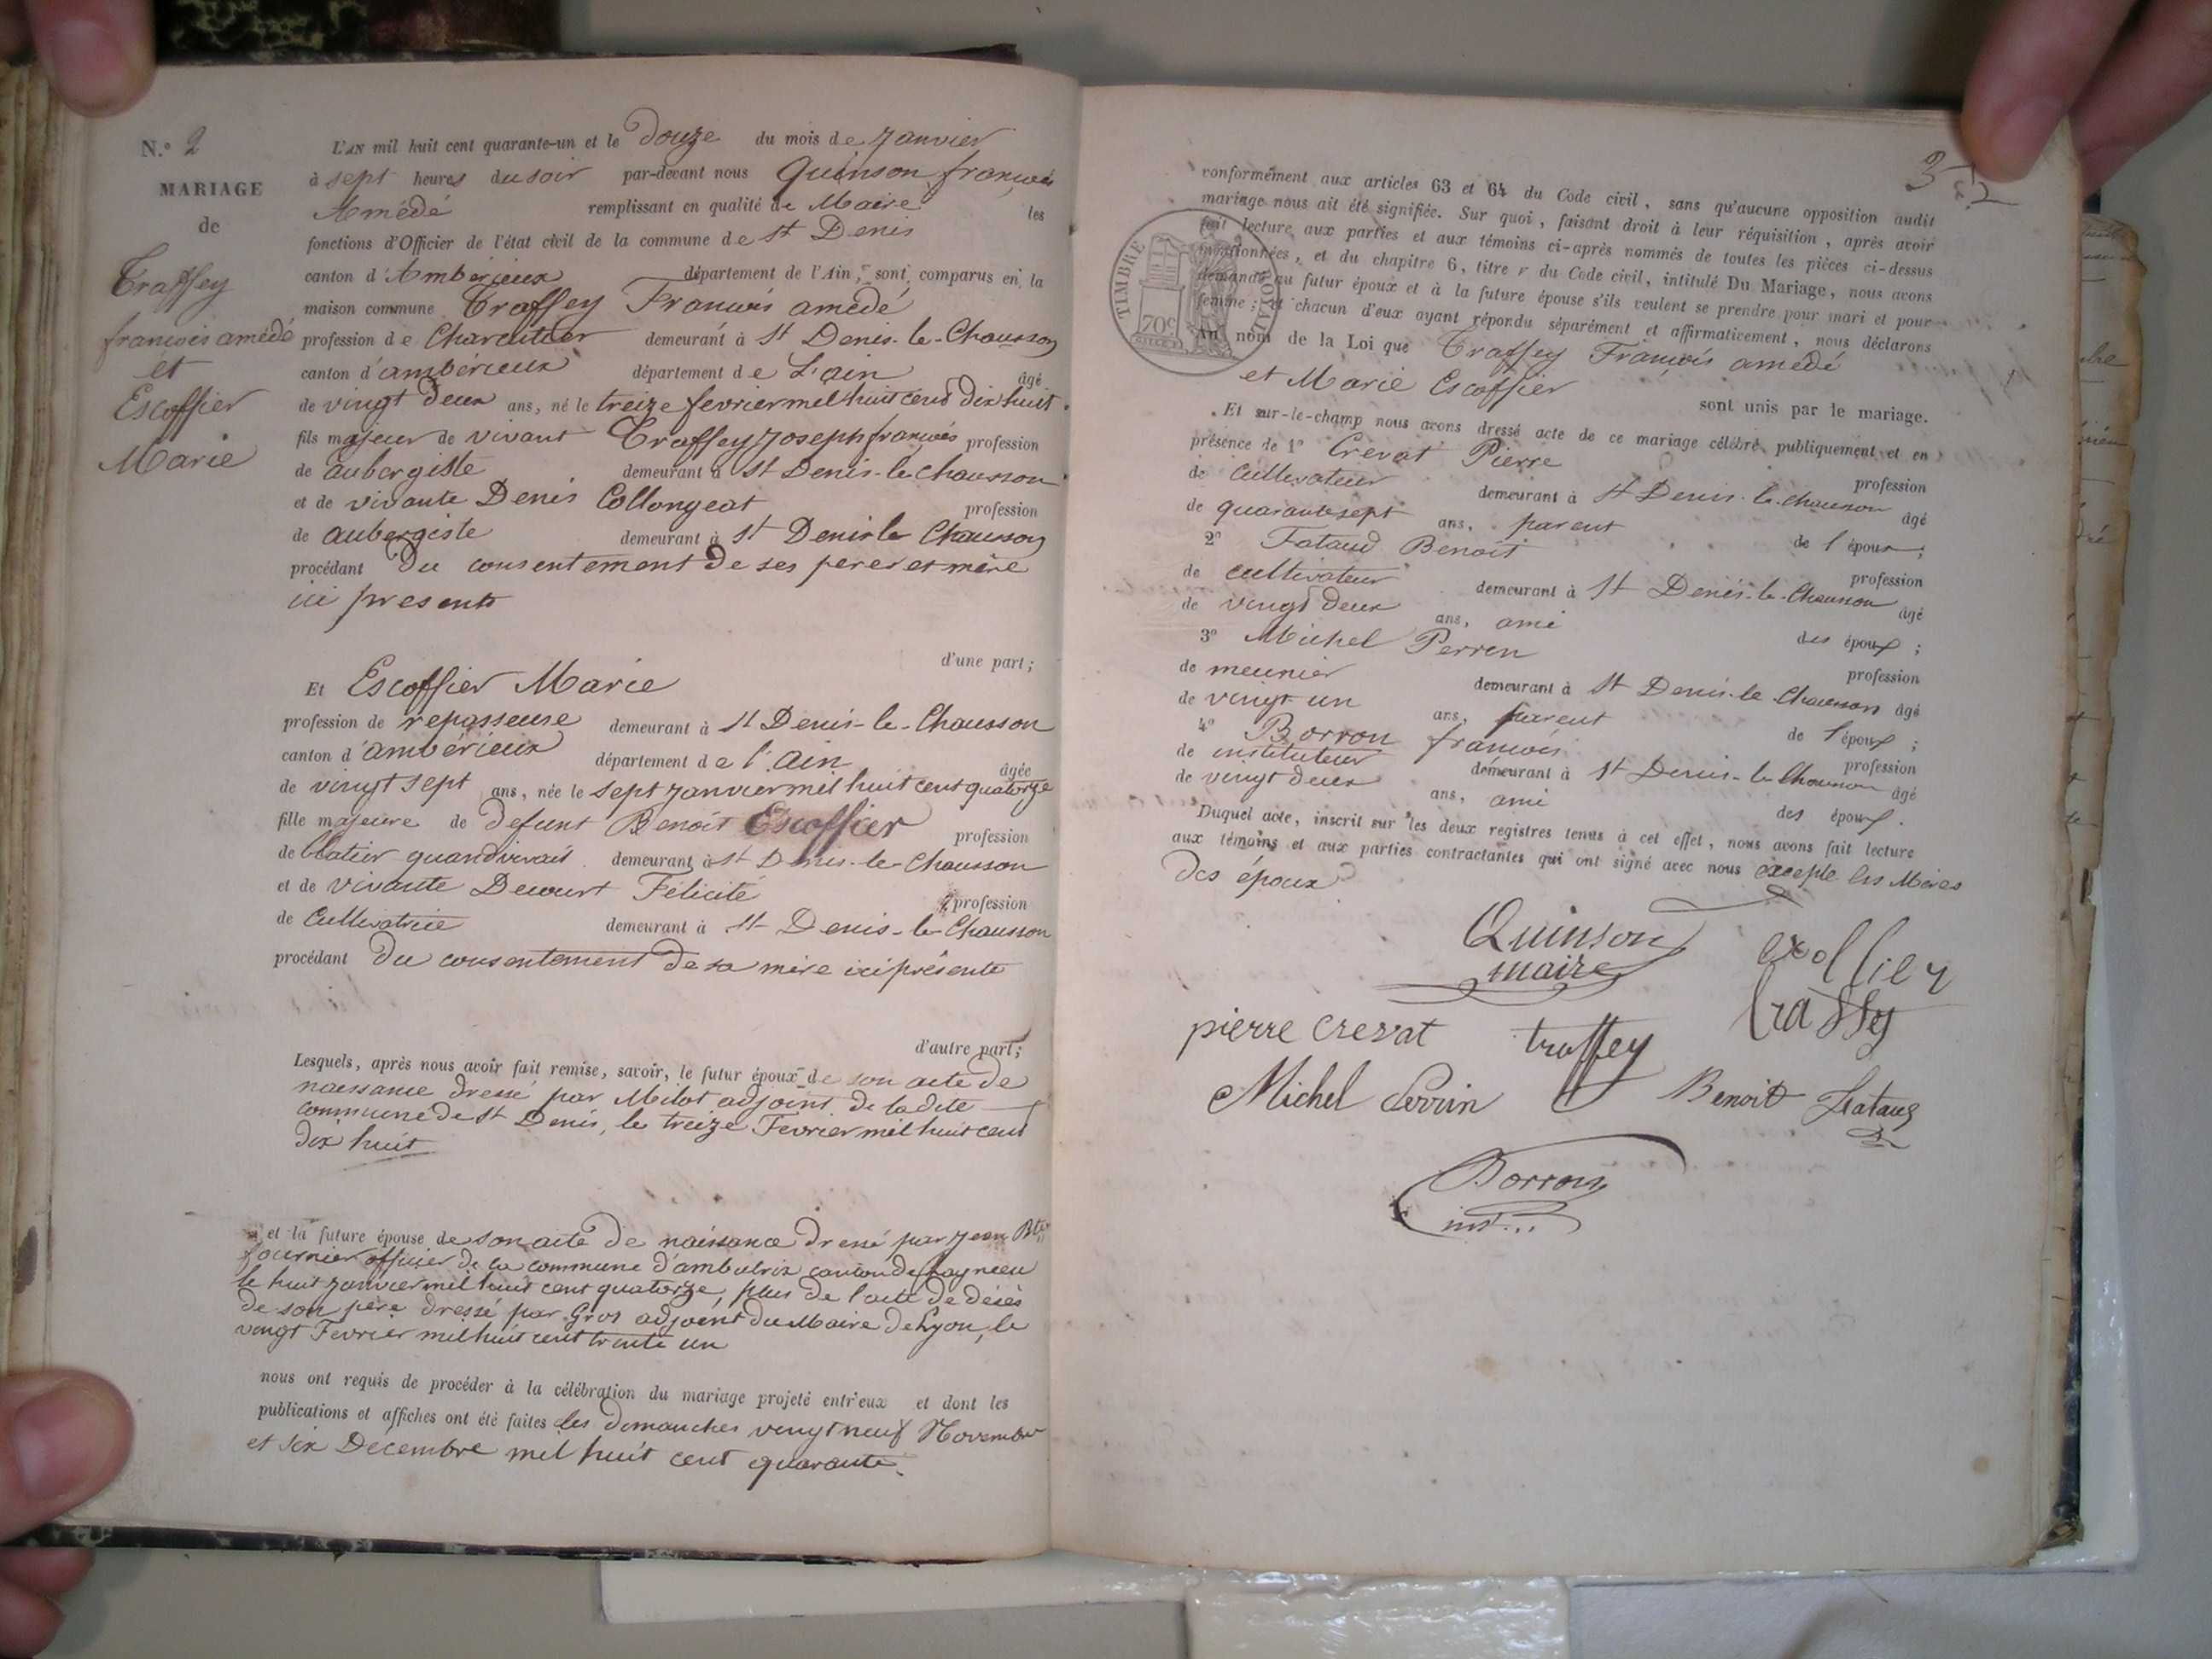 N.º 2
MARIAGE
de
Traffey
françois amédé
et
Escoffier
Marie
L'AN mil huit cent quarante-un et le Douze du mois de Janvier
à sept heures du soir par-devant nous Quinson françois
Amédé remplissant en qualité de Maire les
fonctions d'Officier de l'état civil de la commune de St Denis
canton d'Ambérieux département de l'Ain, sont comparus en la
maison commune Traffey François amédé
profession de Charcutier demeurant à St Denis-le-Chausson
canton d'ambérieux département de L'ain âgé
de vingt deux ans, né le treize fevrier mil huit cent dix huit
fils majeur de vivant Traffey Joseph françois profession
de aubergiste demeurant à St Denis-le Chausson
et de vivante Denis Collongeat profession
de aubergiste demeurant à St Denis le Chausson
procédant Du consentement De ses peres et mère
ici presents
d'une part;
Et Escoffier Marie
profession de repasseuse demeurant à St Denis-le-Chausson
canton d'ambérieux département de l'Ain âgée
de vingt sept ans, née le sept Janvier mil huit cent quatorze
fille majeure de defunt Benoit Escoffier profession
de blatier quand vivait demeurant à St Denis-le-Chausson
et de vivante Decourt Félicité profession
de Cultivatrice demeurant à St Denis-le-Chausson
procédant Du consentement De sa mère ici présente
d'autre part;
Lesquels, après nous avoir fait remise, savoir, le futur époux de son acte de
naissance dressé par Milot adjoint de ladite
commune de St Denis, le treize Fevrier mil huit cent
dix huit
et la future épouse de son acte De naissance dressé par Jean Bte
fournier officier De la commune d'ambutrix canton de Lagnieu
le huit Janvier mil huit cent quatorze, plus De l'acte De décès
De son père dressé par Gros adjoint du Maire De Lyon, le
vingt Fevrier mil huit cent trente un
nous ont requis de procéder à la célébration du mariage projeté entr'eux et dont les
publications et affiches ont été faites les Dimanches vingt neuf Novembre
et six Décembre mil huit cent quarante.
conformément aux articles 63 et 64 du Code civil, sans qu'aucune opposition audit
mariage nous ait été signifiée. Sur quoi, faisant droit à leur réquisition, après avoir
fait lecture aux parties et aux témoins ci-après nommés de toutes les pièces ci-dessus
mentionnées, et du chapitre 6, titre v du Code civil, intitulé Du Mariage, nous avons
demandé au futur époux et à la future épouse s'ils veulent se prendre pour mari et pour
femme; et chacun d'eux ayant répondu séparément et affirmativement, nous déclarons
TIMBRE ROYAL
70c
Au nom de la Loi que Traffey François amédé
et Marie Escoffier sont unis par le mariage.
Et sur-le-champ nous avons dressé acte de ce mariage célébré publiquement et en
présence de 1º Crevat Pierre profession
de Cultivateur demeurant à St Denis-le-Chausson âgé
de quarante sept ans, parent de l'époux;
2º Fataud Benoit profession
de cultivateur demeurant à St Denis-le-Chausson âgé
de vingt deux ans, ami des époux;
3º Michel Perren profession
de meunier demeurant à St Denis-le-Chausson âgé
de vingt un ans, parent de l'époux;
4º Borron françois profession
de instituteur demeurant à St Denis-le-Chausson âgé
de vingt deux ans, ami des époux.
Duquel acte, inscrit sur les deux registres tenus à cet effet, nous avons fait lecture
aux témoins et aux parties contractantes qui ont signé avec nous excepté les Mères
Des époux
Quinson
maire
exoffier
pierre crevat
traffey
traffey
Michel Perrin
Benoit Fataud
Borron
inst...